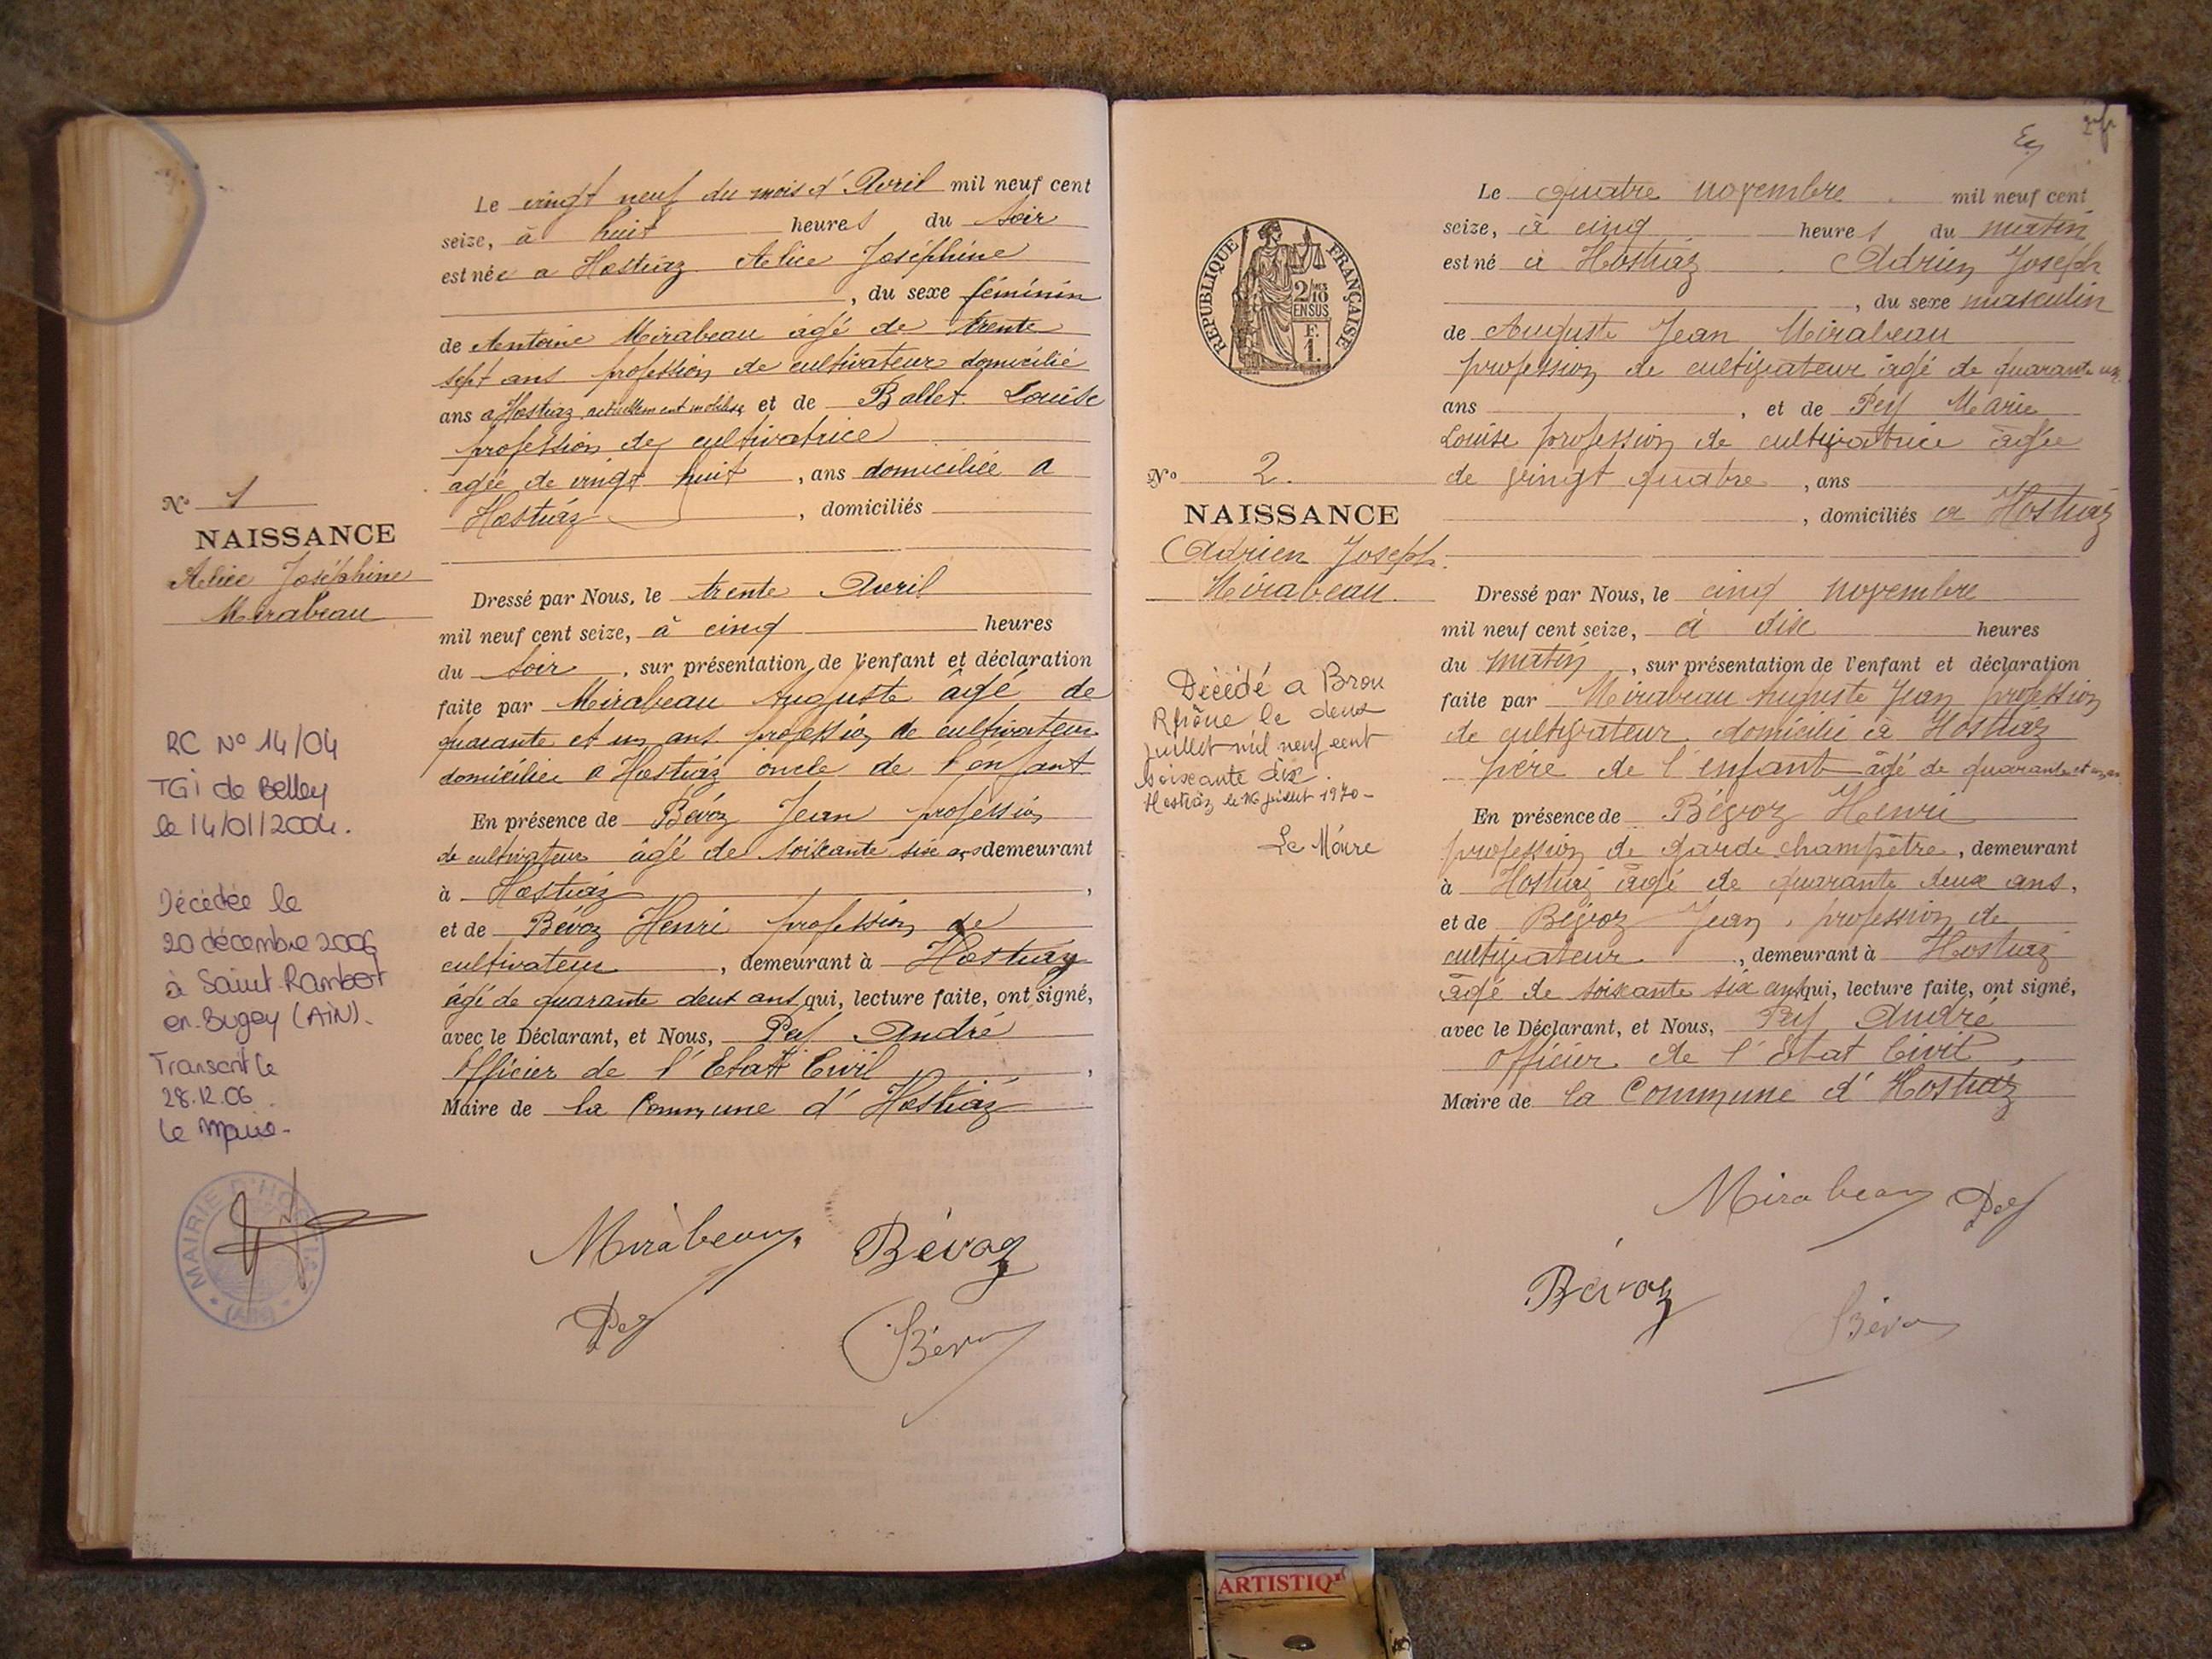 Le vingt neuf du mois d'Avril mil neuf cent
seize, à huit heures du soir
est née a Hostiaz Alice Joséphine
, du sexe féminin
de Antoine Mirabeau âgé de trente
sept ans profession de cultivateur domicilié
ans a Hostiaz actuellement mobilisé et de Ballet Louise
profession de cultivatrice
agée de vingt huit , ans domiciliée a
Hostiaz , domiciliés
Nº 1
NAISSANCE
Alice Joséphine
Mirabeau
Dressé par Nous, le trente Avril
mil neuf cent seize, à cinq heures
du soir , sur présentation de l'enfant et déclaration
faite par Mirabeau Auguste âgé de
quarante et un ans profession de cultivateur
domiciliée a Hostiaz oncle de l'enfant
En présence de Bévoz Jean profession
de cultivateur âgé de soixante six ans demeurant
à Hostiaz ,
et de Bévoz Henri profession de
cultivateur , demeurant à Hostiaz
âgé de quarante deux ans qui, lecture faite, ont signé,
avec le Déclarant, et Nous, Pey André
Officier de l'Etat Civil ,
Maire de la Commune d'Hostiaz
RC Nº 14/04
TGi de Belley
le 14/01/2004.
Décédée le
20 décembre 2006
à Saint-Rambert
en-Bugey (AIN).
Transcrit le
28.12.06
Le Maire.
MAIRIE D'HOSTIAZ
(AIN)
Mirabeau Bévoz
Pey Bévoz
2
RÉPUBLIQUE FRANÇAISE
2/10
EN SUS
F.
1.
Le quatre novembre mil neuf cent
seize, à cinq heures du matin
est né à Hostiaz Adrien Joseph
, du sexe masculin
de Auguste Jean Mirabeau
profession de cultivateur âgé de quarante un
ans , et de Pey Marie
Louise profession de cultivatrice âgée
de vingt quatre , ans
, domiciliés a Hostiaz
Nº 2.
NAISSANCE
Adrien Joseph
Mirabeau.
Dressé par Nous, le cinq novembre
mil neuf cent seize, à dix heures
du matin , sur présentation de l'enfant et déclaration
faite par Mirabeau Auguste Jean profession
de cultivateur domicilié à Hostiaz
père de l'enfant âgé de quarante et un ans
En présence de Bévoz Henri
profession de garde champêtre, demeurant
à Hostiaz âgé de quarante deux ans,
et de Bévoz Jean, profession de
cultivateur , demeurant à Hostiaz
âgé de soixante six ans qui, lecture faite, ont signé,
avec le Déclarant, et Nous, Pey André
officier de l'Etat Civil ,
Maire de la Commune d'Hostiaz
Décédé a Bron
Rhône le deux
juillet mil neuf cent
soixante dix.
Hostiaz le 16 juillet 1970-
Le Maire
Mirabeau Pey
Bévoz Bévoz
ARTISTIQ